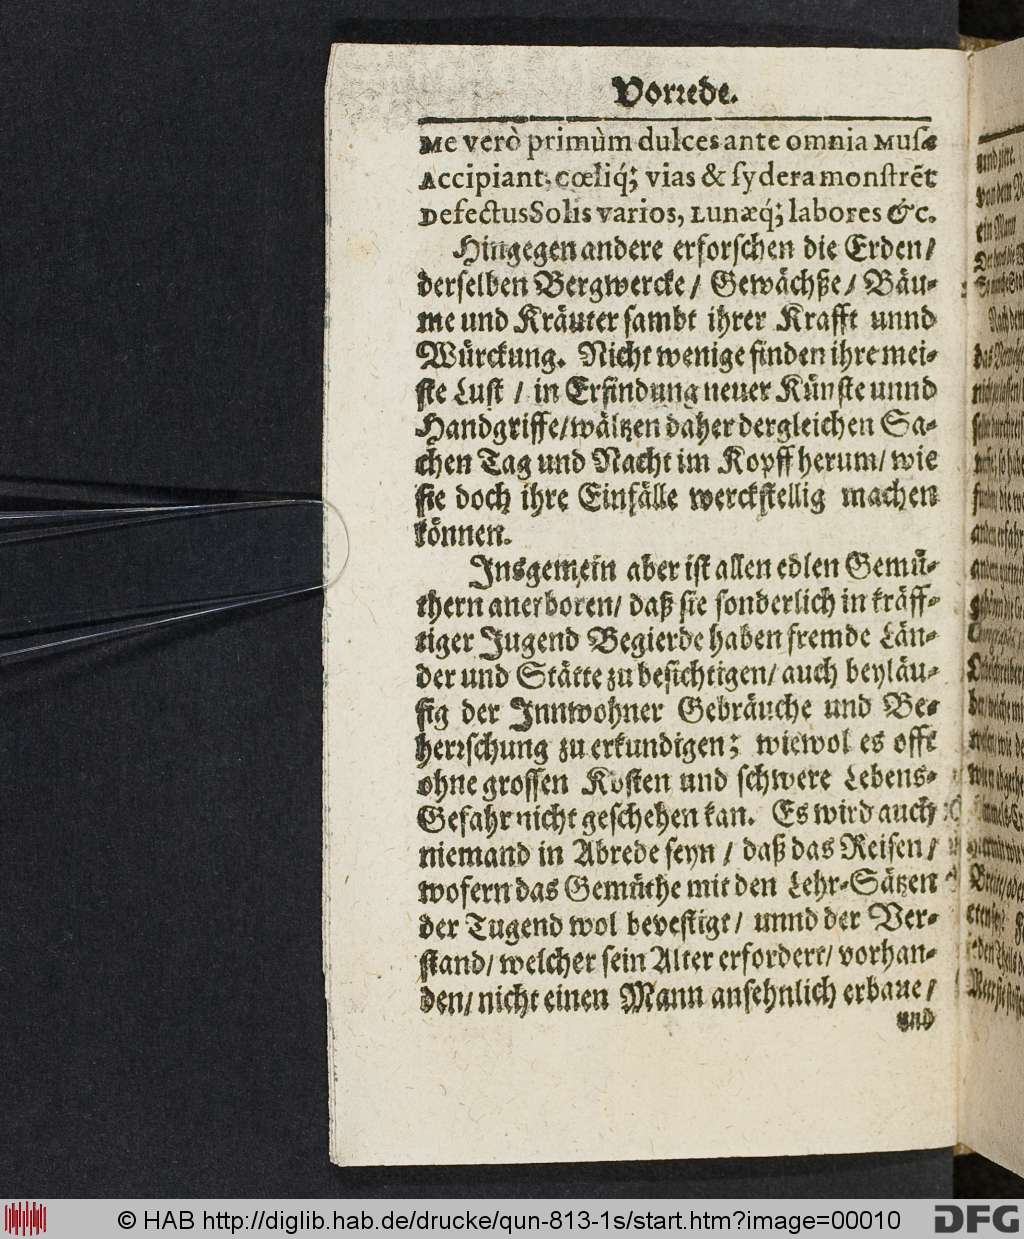 Vorrede.
Me verò primùm dulces ante omnia Musæ
Accipiant, cœliq́; vias & sydera monstrẽt
Defectus Solis varios, Lunæq́; labores &c.
Hingegen andere erforschen die Erden/
derselben Bergwercke/ Gewächße/ Bäu-
me und Kräuter sambt ihrer Krafft unnd
Würckung. Nicht wenige finden ihre mei-
ste Lust / in Erfindung neuer Künste unnd
Handgriffe/ wältzen daher dergleichen Sa-
chen Tag und Nacht im Kopff herum/ wie
sie doch ihre Einfälle werckstellig machen
können.
Insgemein aber ist allen edlen Gemü-
thern anerboren/ daß sie sonderlich in kräff-
tiger Jugend Begierde haben fremde Län-
der und Stätte zu besichtigen/ auch beyläu-
fig der Innwohner Gebräuche und Be-
herrschung zu erkundigen; wiewol es offt
ohne grossen Kosten und schwere Lebens-
Gefahr nicht geschehen kan. Es wird auch
niemand in Abrede seyn / daß das Reisen/
wofern das Gemüthe mit den Lehr-Sätzen
der Tugend wol bevestigt/ unnd der Ver-
stand/ welcher sein Alter erfordert/ vorhan-
den/ nicht einen Mann ansehnlich erbaue/
und
© HAB http://diglib.hab.de/drucke/qun-813-1s/start.htm?image=00010
DFG